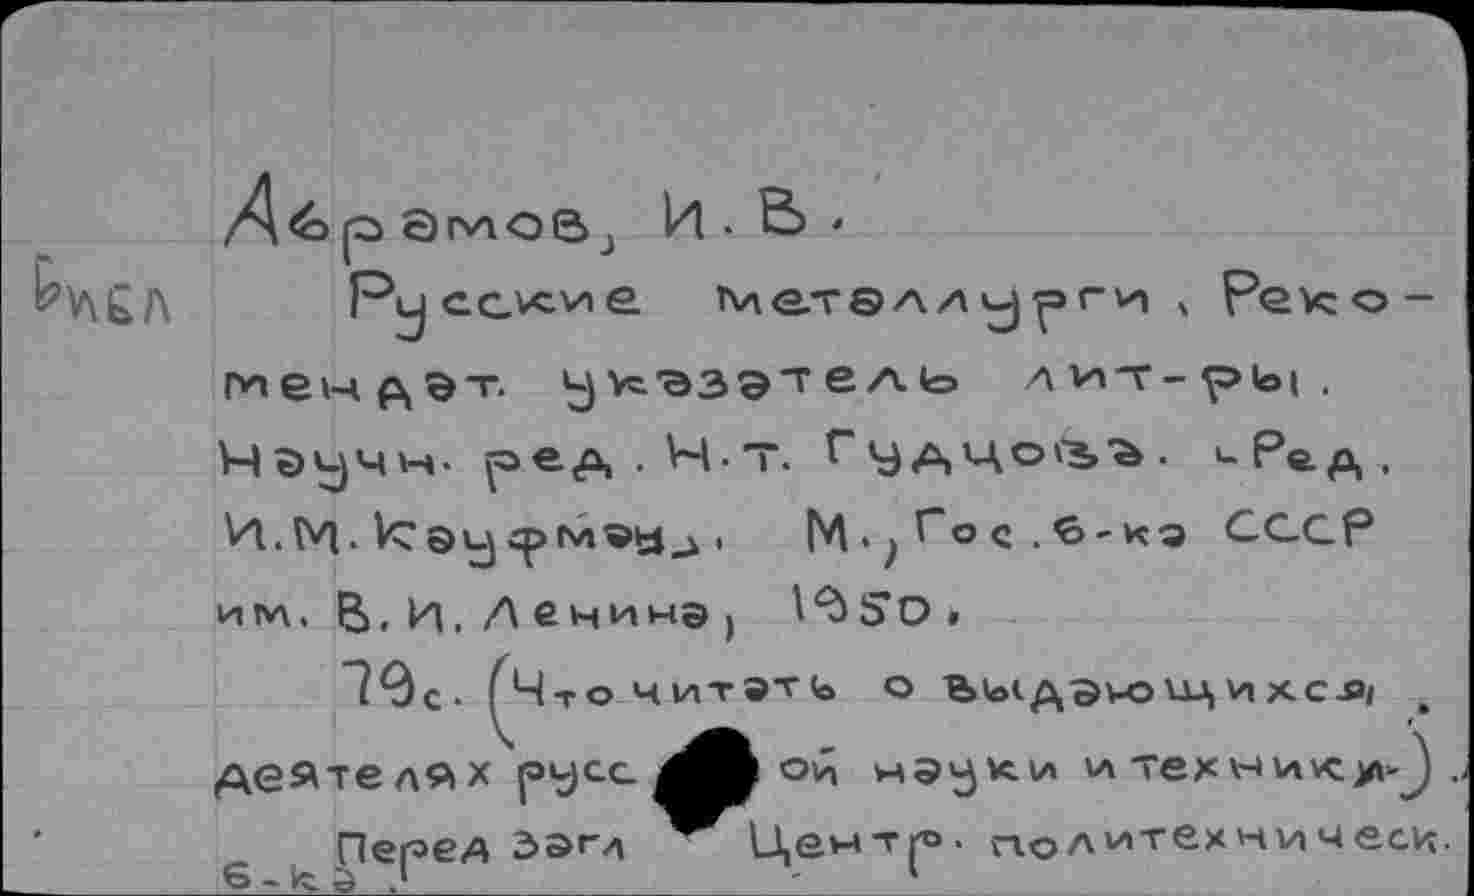 Абрамов, И. В.
Библ
Русские металлурги, Реко-
мендат. указатель лит-ры.
Научн. ред. Н. Т. Гудцова. Ред.
И. М. Кауфмана. М., Гос. б-ка СССР
им. В. И. Ленина, 1950.
79с. (Что читать о выдающихся
деятелях русс ой науки и техники).
Перед загл Центр. политехническ.
б-ка.